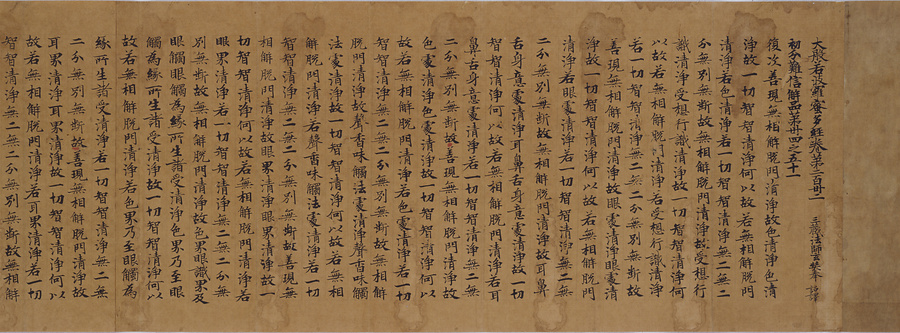 大般若波羅蜜多經卷第二百卅二 三藏法師玄奘奉 詔譯
初分難信解品第卅四之五十一
復次善現無相解脫門清淨故色清淨色清
淨故一切智智清淨何以故若無相解脫門
清淨若色清淨若一切智智清淨無二無二
分無別無斷故無相解脫門清淨故受想行
識清淨受想行識清淨故一切智智清淨何
以故若無相解脫門清淨若受想行識清淨
若一切智智清淨無二無二分無別無斷故
善現無相解脫門清淨故眼處清淨眼處清
淨故一切智智清淨何以故若無相解脫門
清淨若眼處清淨若一切智智清淨無二無
二分無別無斷故無相解脫門清淨故耳鼻
舌身意處清淨耳鼻舌身意處清淨故一切
智智清淨何以故若無相解脫門清淨若耳
鼻舌身意處清淨若一切智智清淨無二無
二分無別無斷故善現無相解脫門清淨故
色處清淨色處清淨故一切智智清淨何以
故若無相解脫門清淨若色處清淨若一切
智智清淨無二無二分無別無斷故無相解
脫門清淨故聲香味觸法處清淨聲香味觸
法處清淨故一切智智清淨何以故若無相
解脫門清淨若聲香味觸法處清淨若一切
智智清淨無二無二分無別無斷故善現無
相解脫門清淨故眼界清淨眼界清淨故一
切智智清淨何以故若無相解脫門清淨若
眼界清淨若一切智智清淨無二無二分無
別無斷故無相解脫門清淨故色界眼識界及
眼觸眼觸為緣所生諸受清淨色界乃至眼
觸為緣所生諸受清淨故一切智智清淨何以
故若無相解脫門清淨若色界乃至眼觸為
緣所生諸受清淨若一切智智清淨無二無
二分無別無斷故善現無相解脫門清淨故
耳界清淨耳界清淨故一切智智清淨何以
故若無相解脫門清淨若耳界清淨若一切
智智清淨無二無二分無別無斷故無相解